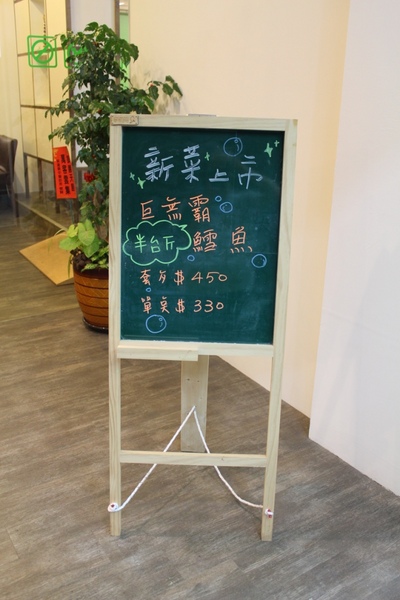 新菜上市
巨無霸
半台斤 鱈魚
套友$450
單桌$330